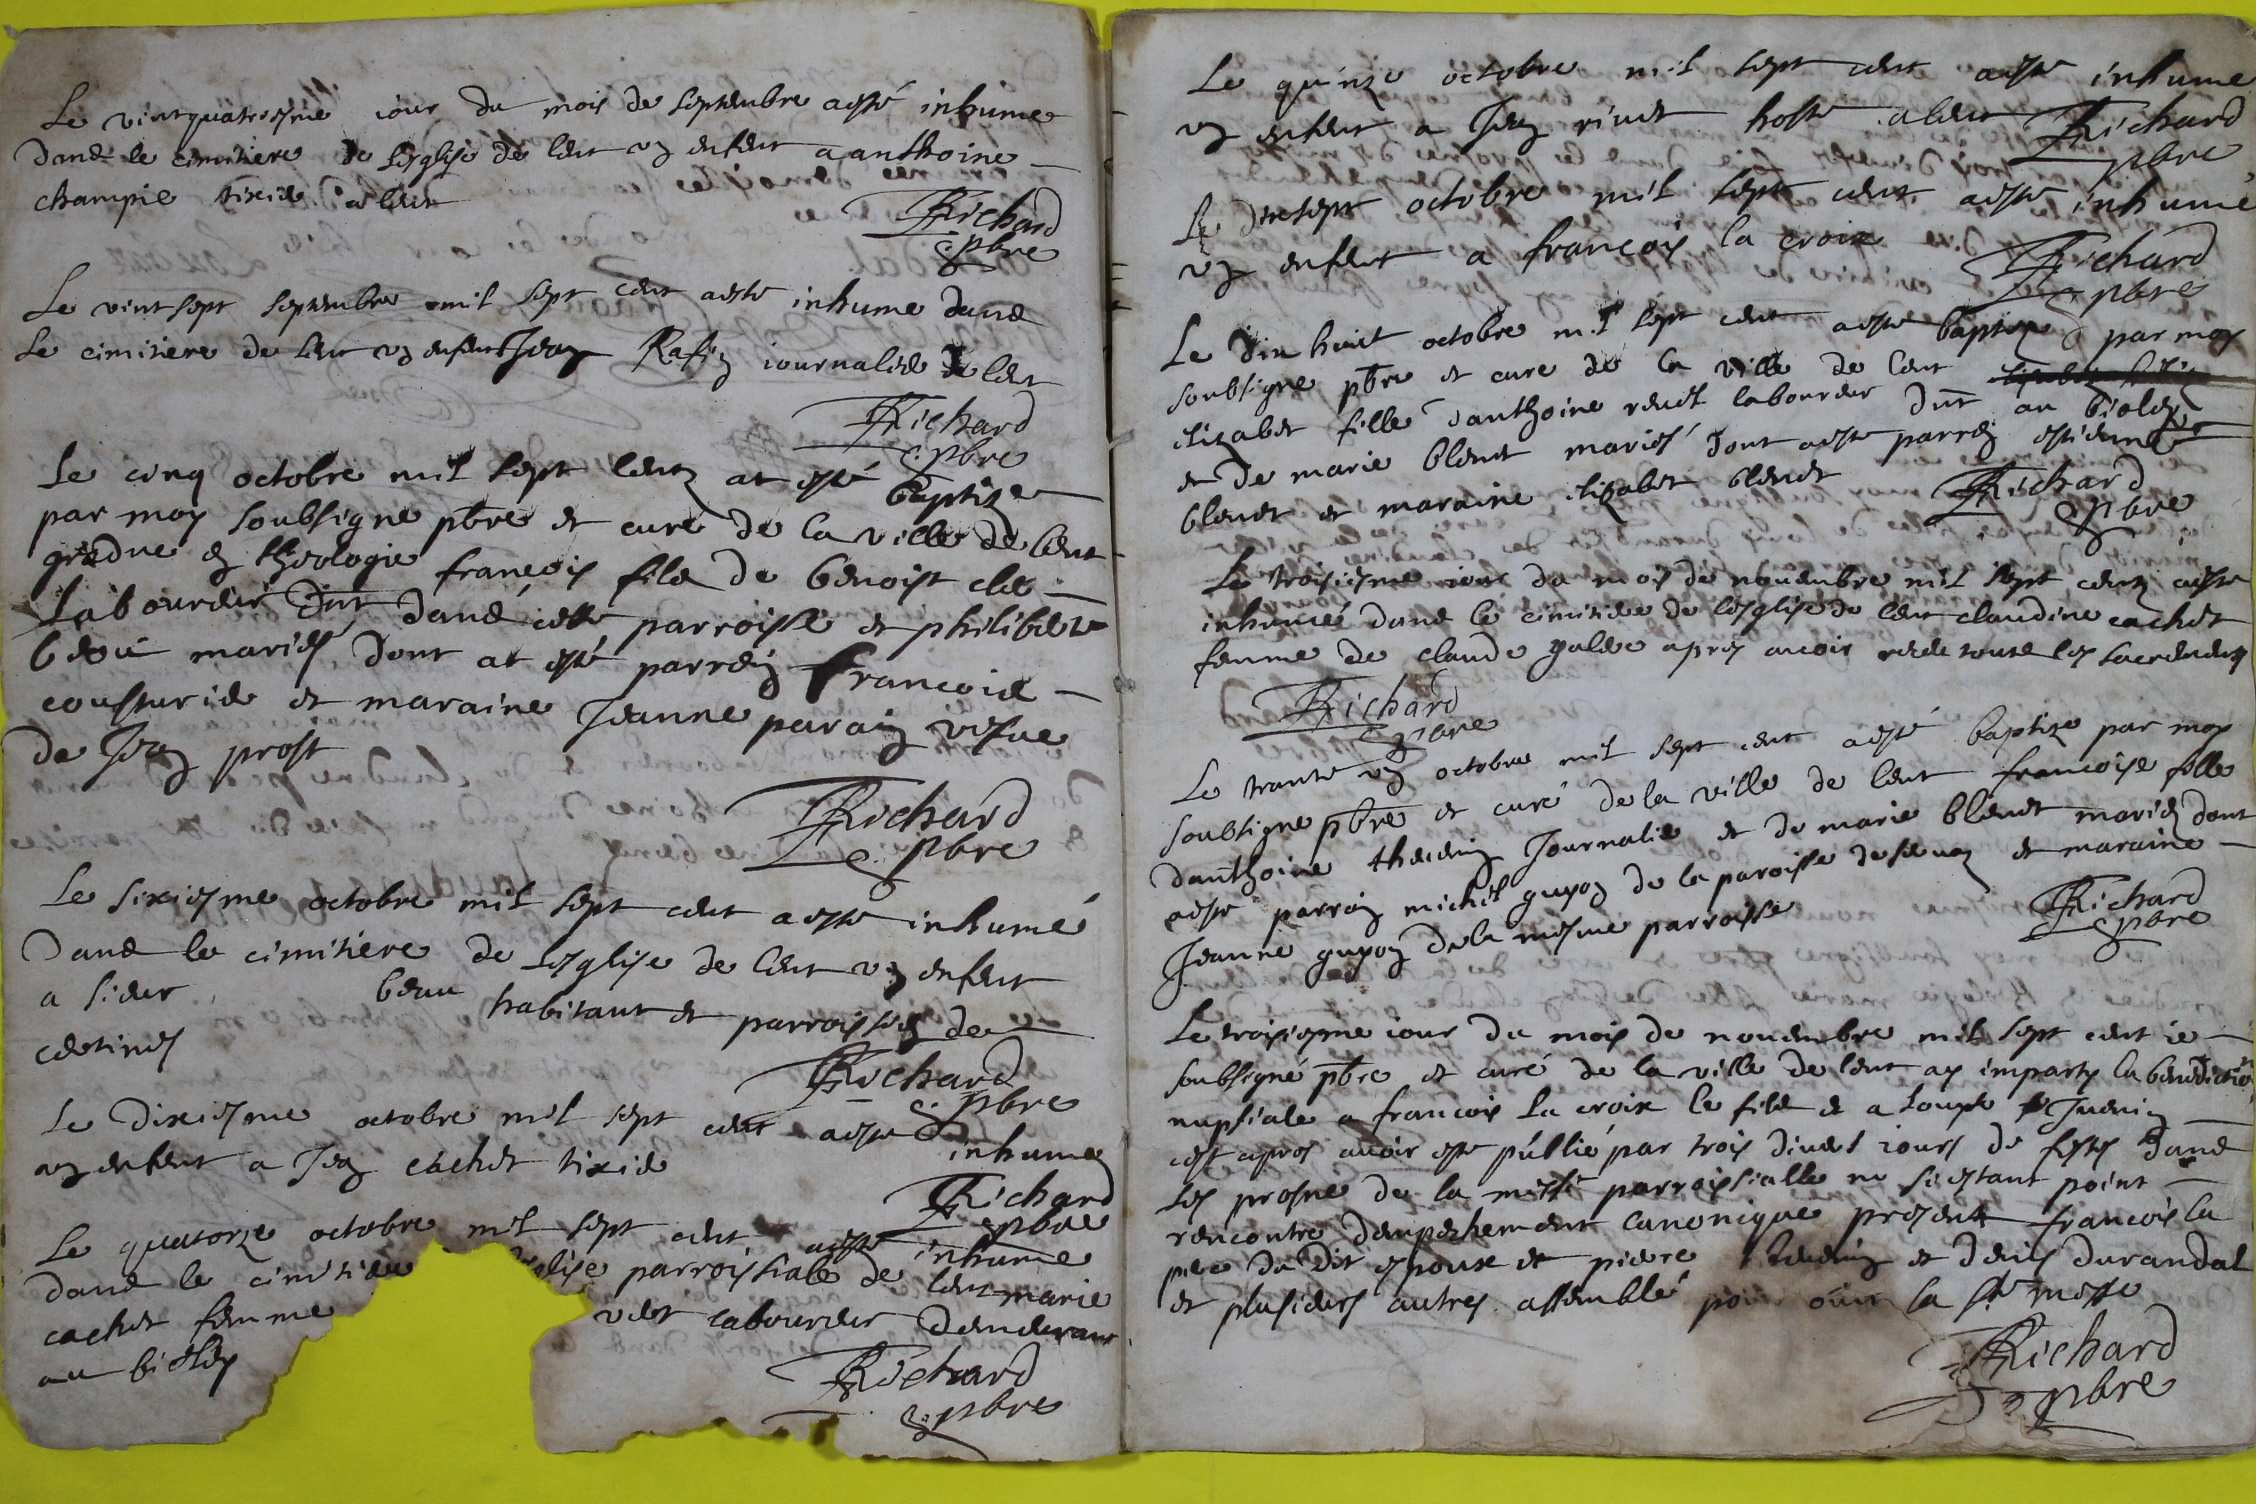 Le vintquatriesme iour du mois de septembre a esté inhume
dans le cimitiere de l'esglise de lent un enfent a anthoine
champie tixier a lent
Richard
pbre
Le vint sept septembre mil sept cent a esté inhume dans
le cimitiere de lent un enfent Jean Rafin iournalier de lent
Richard
pbre
Le cinq octobre mil sept cents at esté baptize
par moy soubsigne pbre et curé de la ville de lent
gradue en theologie francois fils de benoist
laboureur dans cette parroisse et philiberte
maries dont at esté parrein francois
cousturier et maraine Jeanne parain vesue
de Jean prost
Richard
pbre
Le sixiesme octobre mil sept cent a esté inhumé
dans le cimitiere de l'esglise de lent un enfent
a sieur beau habitant et parroissien de
certines
Richard
pbre
Le dixiesme octobre mil sept cent a esté inhume
un enfent a Jean cachet tixier
Richard
pbre
Le quatorze octobre mil sept cent a esté inhume
dans le cimitiere parroissiale de lent marie
cachet femme laboureur demeurant
au biolay
Richard
pbre
Le quinze octobre mil sept cent a esté inhume
un enfent a Jean rivet hoste a lent
Richard
pbre
Le dixsept octobre mil sept cent a esté inhumé
un enfent a francois la croix
Richard
pbre
Le dix huit octobre mil sept cent a esté baptize par moy
soubsigne pbre et cure de la ville de lent
elizabet fille d'anthoine revet laboureur au biolay
et de marie blenet mariés dont a esté parrein estienne
blenet et maraine elizabet blenet
Richard
pbre
Le troisiesme iour du mois de nouembre mil sept cents a esté
inhumé dans le cimitiere de l'esglise de lent claudine cachet
femme de claude apres auoir receu tous les sacremens
Richard
pbre
Le trante un octobre mil sept cent a esté baptize par moy
soubsigne pbre et curé de la ville de lent francoise fille
d'anthoine theuenin Journalier et de marie blenet mariez dont
a esté parrein michel guyon de la paroisse de seruaz et maraine
Jeanne guyon de la mesme parroisse
Richard
pbre
Le troisiesme iour du mois de nouembre mil sept cent ie
soubsigné pbre et curé de la ville de lent ay imparty la benediction
nuptiale a francois la croix le fils et a
cest apres auoir esté publié par trois diuers iours de festes dans
les prosne de la messe parroissialle ne s'estant point
rencontre d'empeschement canonique presents francois la
pere du dit espoux et pierre et denis durandal
et plusieurs autres assemblé pour ouir la ste messe
Richard
pbre